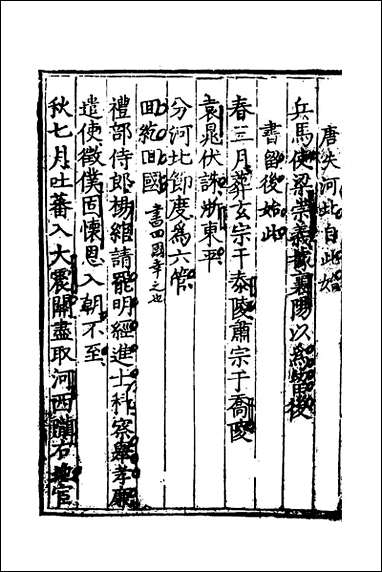 唐失河北自此始
兵馬使梁崇義據襄陽以為留後
書留後始此
春三月葬玄宗于泰陵肅宗于喬陵
袁晁伏誅浙東平
分河北節度為六管
回紇回國書回國幸之也
禮部侍郎楊綰請罷明經進士科察舉孝廉
遣使徵僕固懷恩入朝不至
秋七月吐蕃入大震關盡取河西隴右地宦